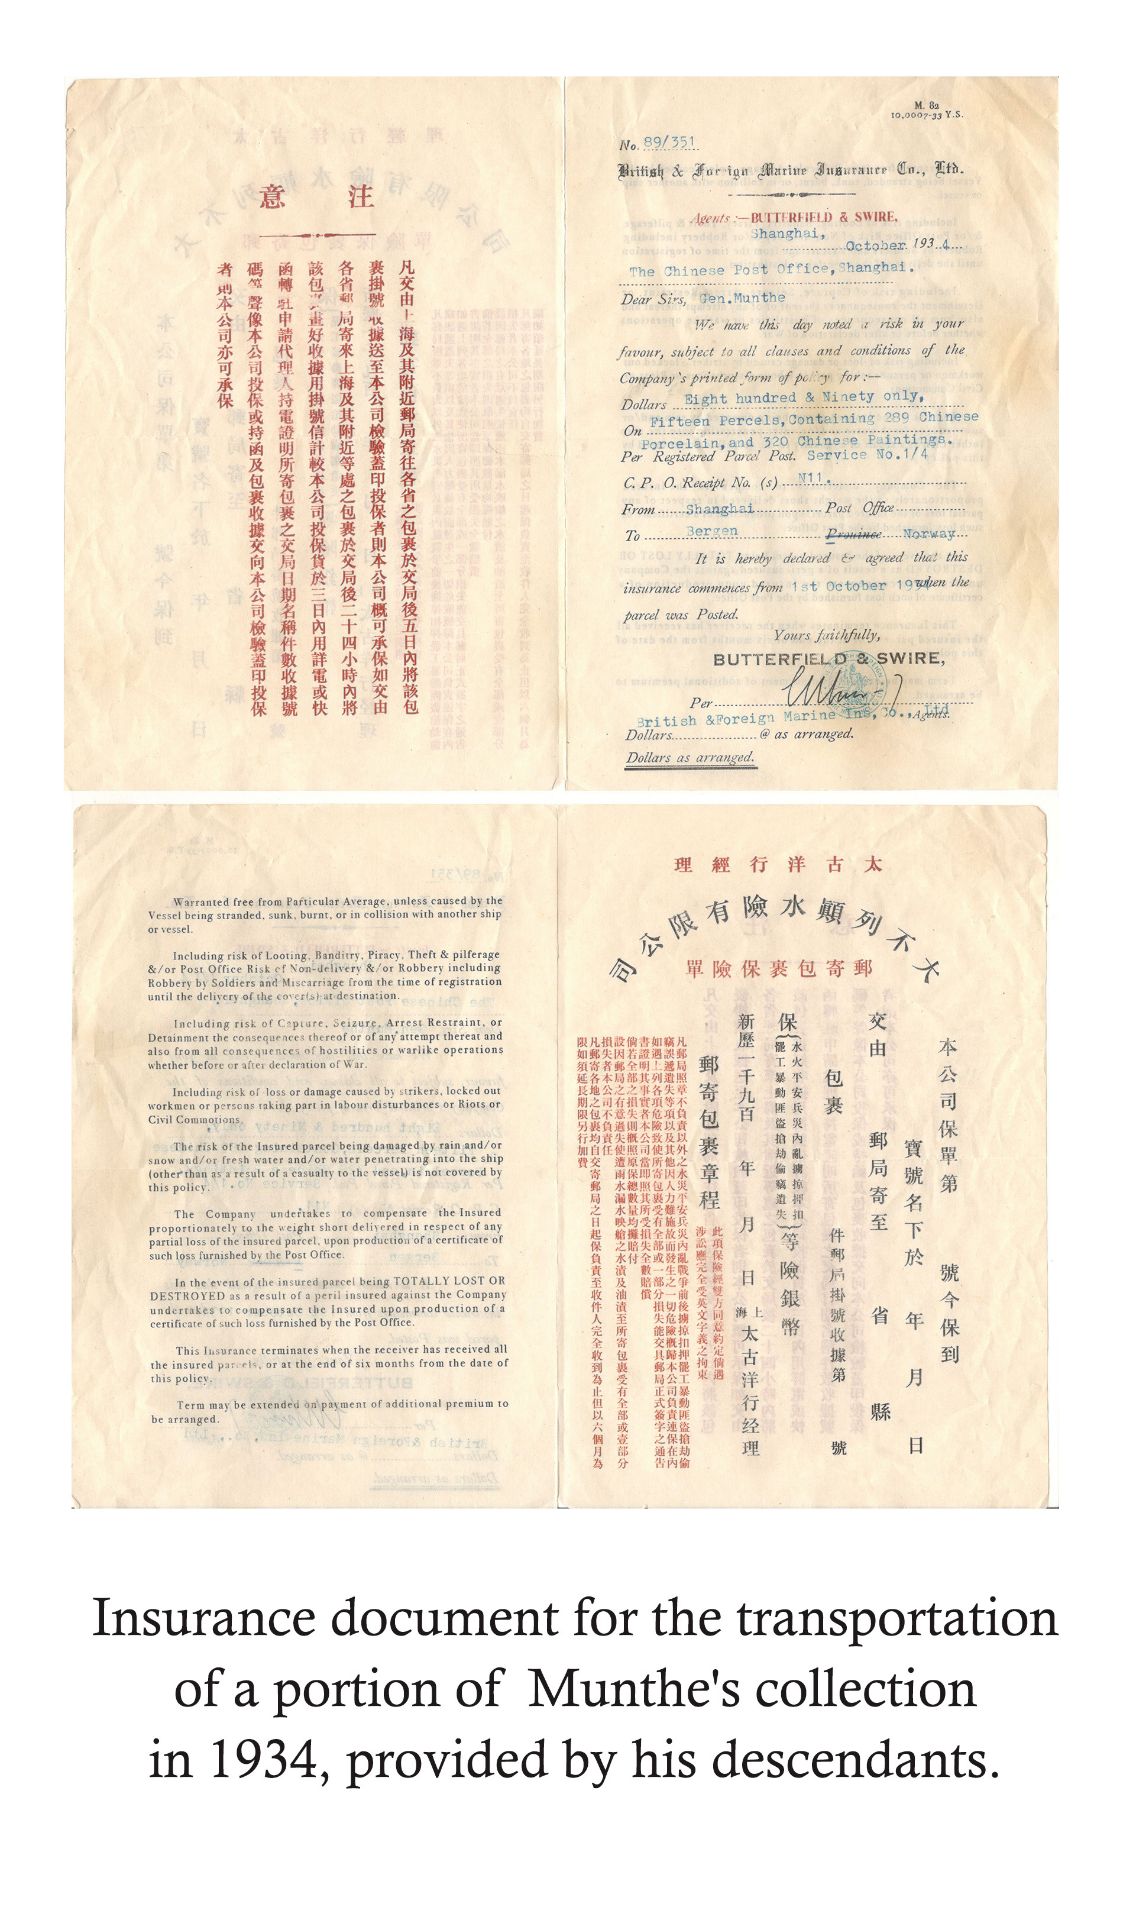 注意
凡交由上海及其附近郵局寄往各省之包裹於交局後五日內將該包
裹掛號收據送至本公司檢驗蓋印投保者則本公司概可承保如交由
各省郵局寄來上海及其附近等處之包裹於交局後二十四小時內將
該包裹畫好收據用掛號信計較本公司投保貨於三日內用詳電或快
函轉駐申請代理人持電證明所寄包裹之交局日期名稱件數收據號
碼等聲像本公司投保或持函及包裹收據交向本公司檢驗蓋印投保
者則本公司亦可承保
M. 82
10,0007-33 Y.S.
No. 89/351
British & Foreign Marine Insurance Co., Ltd.
Agents:—BUTTERFIELD & SWIRE,
Shanghai,
October 1934
The Chinese Post Office, Shanghai.
Dear Sirs, Gen.Munthe
We have this day noted a risk in your
favour, subject to all clauses and conditions of the
Company's printed form of policy for:—
Dollars Eight hundred & Ninety only,
On Fifteen Percels, Containing 289 Chinese
Porcelain, and 320 Chinese Paintings.
Per Registered Parcel Post. Service No.1/4
C. P. O. Receipt No. (s) N11.
From Shanghai Post Office
To Bergen Province Norway
It is hereby declared & agreed that this
insurance commences from 1st October 1934 when the
parcel was Posted.
Yours faithfully,
BUTTERFIELD & SWIRE,
Per
British &Foreign Marine Ins, Co., Ltd Agents.
Dollars @ as arranged.
Dollars as arranged.
Warranted free from Particular Average, unless caused by the
Vessel being stranded, sunk, burnt, or in collision with another ship
or vessel.
Including risk of Looting, Banditry, Piracy, Theft & pilferage
&/or Post Office Risk of Non-delivery &/or Robbery including
Robbery by Soldiers and Miscarriage from the time of registration
until the delivery of the cover(s) at destination.
Including risk of Capture, Seizure, Arrest Restraint, or
Detainment the consequences thereof or of any attempt thereat and
also from all consequences of hostilities or warlike operations
whether before or after declaration of War.
Including risk of loss or damage caused by strikers, locked out
workmen or persons taking part in labour disturbances or Riots or
Civil Commotions.
The risk of the Insured parcel being damaged by rain and/or
snow and/or fresh water and/or water penetrating into the ship
(other than as a result of a casualty to the vessel) is not covered by
this policy.
The Company undertakes to compensate the Insured
proportionately to the weight short delivered in respect of any
partial loss of the insured parcel, upon production of a certificate of
such loss furnished by the Post Office.
In the event of the insured parcel being TOTALLY LOST OR
DESTROYED as a result of a peril insured against the Company
undertakes to compensate the Insured upon production of a
certificate of such loss furnished by the Post Office.
This Insurance terminates when the receiver has received all
the insured parcels, or at the end of six months from the date of
this policy.
Term may be extended on payment of additional premium to
be arranged.
太古洋行經理
大不列顛水險有限公司
郵寄包裹保險單
本公司保單第 號今保到
寶號名下於 年 月 日
交由 郵局寄至 省 縣
包裹 件郵局掛號收據第 號
保(水火平安兵災內亂擄掠押扣
罷工暴動匪盜搶劫偷竊遺失)等險銀幣
新歷一千九百 年 月 日 上海太古洋行经理
郵寄包裹章程
此項保險經雙方同意約定倘遇
涉訟應完全受英文字義之拘束
凡郵局照章不負責以外之水災平安兵災內亂戰爭前後擄掠扣押罷工暴動匪盜搶劫偷
竊誤遞遺失等項以及其他因人力難施故而發生之一切危險概歸本公司負責連保在內
如遇上列各項危險致使所寄包裹受有全部或一部分損失能交具郵局正式簽字之通告
書證明其事實者本公司當即照其所受損失全數賠償
倘若全部之損失則概照原保總數量均攤賠付
設因郵局之有意過失使遭雨水漏水映艙之水漬及油漬至所寄包裹受有全部或壹部分
損失者本公司不負責任
凡郵寄各地之包裹均自交寄郵局之日起保負責至收件人完全收到為止但以六個月為
限如須延長期限另行加費
Insurance document for the transportation
of a portion of Munthe's collection
in 1934, provided by his descendants.